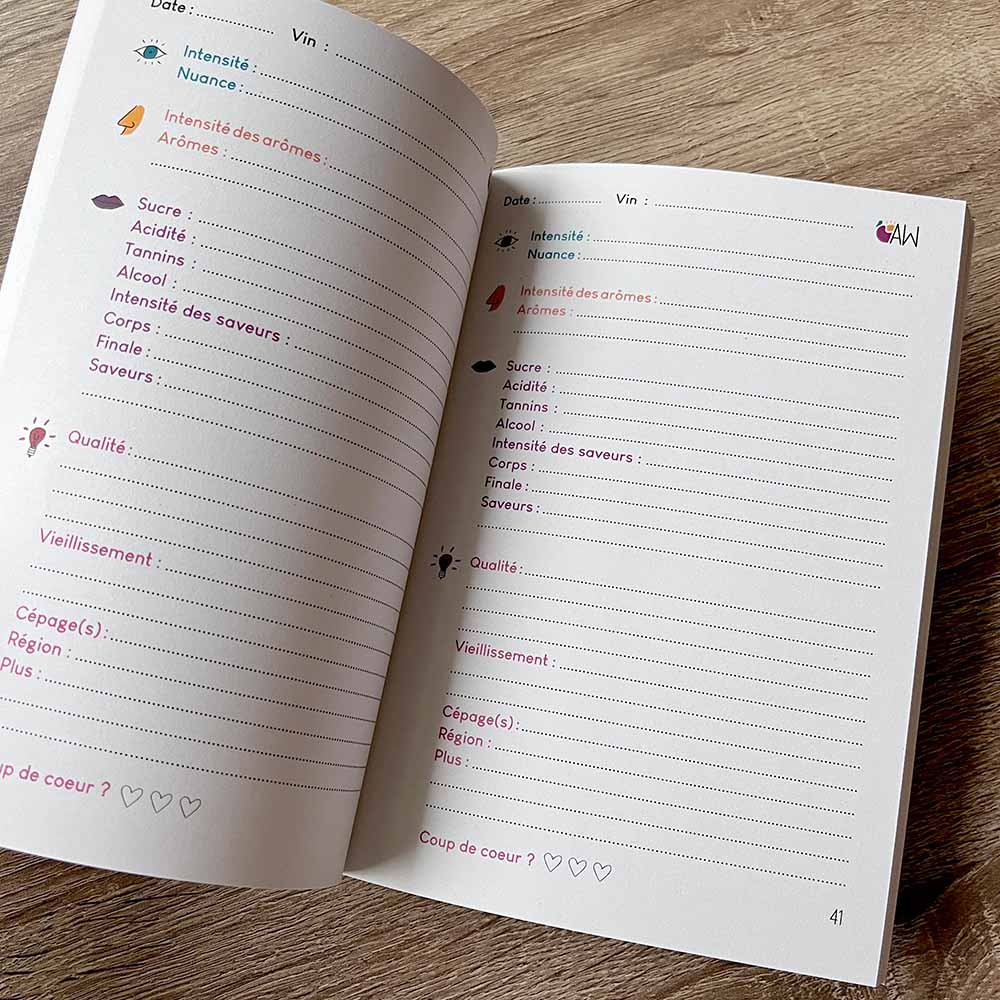 Date :
Vin :
Intensité :
Nuance :
Intensité des arômes :
Arômes :
Sucre :
Acidité :
Tannins :
Alcool :
Intensité des saveurs :
Corps :
Finale :
Saveurs :
Qualité :
Vieillissement :
Cépage(s) :
Région :
Plus :
up de coeur ?
Date : Vin :
AW
Intensité :
Nuance :
Intensité des arômes :
Arômes :
Sucre :
Acidité :
Tannins :
Alcool :
Intensité des saveurs :
Corps :
Finale :
Saveurs :
Qualité :
Vieillissement :
Cépage(s) :
Région :
Plus :
Coup de coeur ?
41